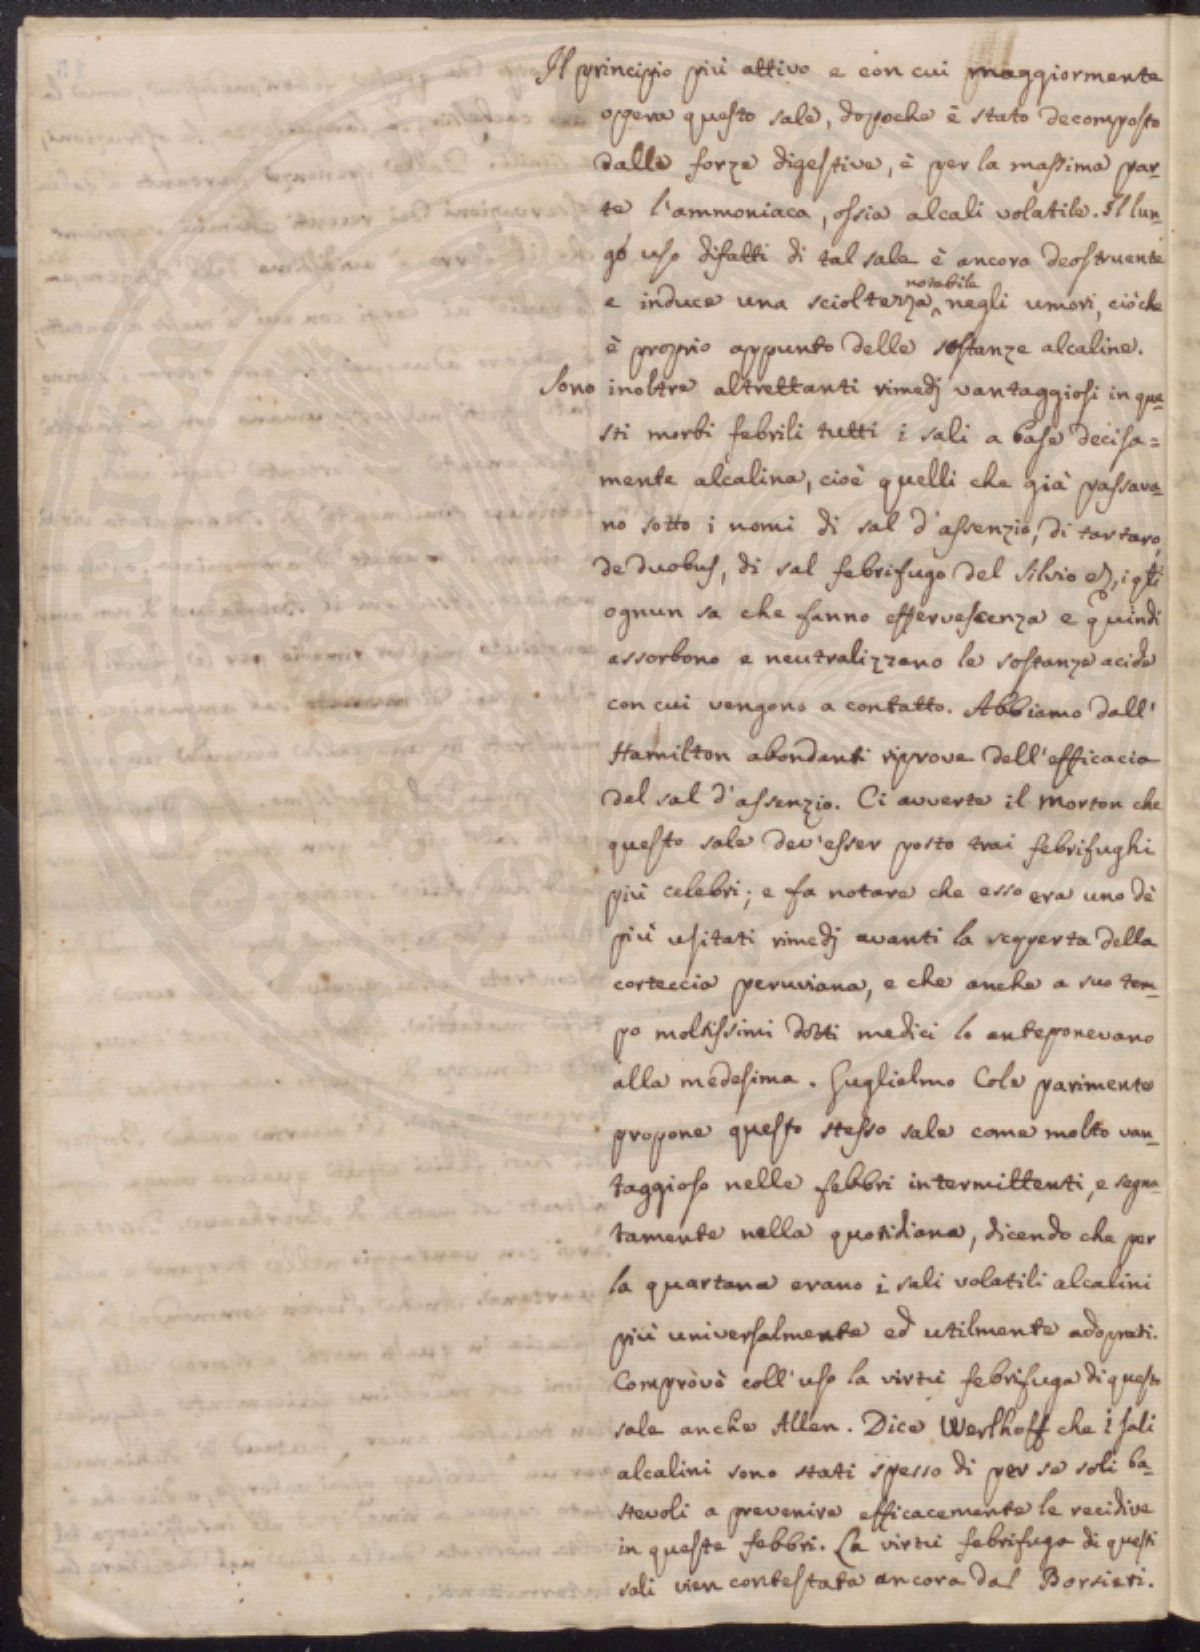 Il principio più attivo e con cui maggiormente
opera questo sale, dopoche è stato decomposto
dalle forze digestive, è per la massima par-
te l'ammoniaca, ossia alcali volatile. Il lun-
go uso difatti di tal sale è ancora deostruente
e induce una scioltezza notabile negli umori, ciò che
è proprio appunto delle sostanze alcaline.
Sono inoltre altrettanti rimedj vantaggiosi in que-
sti morbi febrili tutti i sali a base decisa=
mente alcalina, cioè quelli che già passava-
no sotto i nomi di sal d'assenzio, di tartaro,
de duobus, di sal febrifugo del Silvio &, i qti
ognun sa che fanno effervescenza e quindi
assorbono e neutralizzano le sostanze acide
con cui vengono a contatto. Abbiamo dall'
Hamilton abondanti riprove dell'efficacia
del sal d'assenzio. Ci avverte il Morton che
questo sale dev'esser posto trai febrifughi
più celebri; e fa notare che esso era uno dè
più usitati rimedj avanti la scoperta della
corteccia peruviana, e che anche a suo tem-
po moltissimi dotti medici lo anteponevano
alla medesima. Guglielmo Cole parimente
propone questo stesso sale come molto van-
taggioso nelle febbri intermittenti, e segna-
tamente nella quotidiana, dicendo che per
la quartana erano i sali volatili alcalini
più universalmente ed utilmente adoprati.
Comprovò coll'uso la virtù febrifuga di questo
sale anche Allen. Dice Werlhoff che i sali
alcalini sono stati spesso di per se soli ba-
stevoli a prevenire efficacemente le recidive
in queste febbri. La virtù febrifuga di questi
sali vien contestata ancora dal Borsieri.